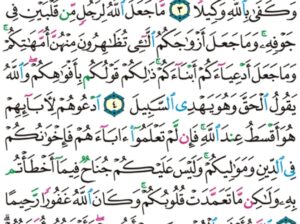 وَكَفَىٰ بِٱللَّهِ وَكِيلًا ٣ مَّا جَعَلَ ٱللَّهُ لِرَجُلٍ مِّن قَلْبَيْنِ فِى
جَوْفِهِۦ ۚ وَمَا جَعَلَ أَزْوَٰجَكُمُ ٱلَّٰٓـِٔى تُظَٰهِرُونَ مِنْهُنَّ أُمَّهَٰتِكُمْ ۚ
وَمَا جَعَلَ أَدْعِيَآءَكُمْ أَبْنَآءَكُمْ ۚ ذَٰلِكُمْ قَوْلُكُم بِأَفْوَٰهِكُمْ ۖ وَٱللَّهُ
يَقُولُ ٱلْحَقَّ وَهُوَ يَهْدِى ٱلسَّبِيلَ ٤ ٱدْعُوهُمْ لِءَابَآئِهِمْ
هُوَ أَقْسَطُ عِندَ ٱللَّهِ ۚ فَإِن لَّمْ تَعْلَمُوٓا۟ ءَابَآءَهُمْ فَإِخْوَٰنُكُمْ
فِى ٱلدِّينِ وَمَوَٰلِيكُمْ ۚ وَلَيْسَ عَلَيْكُمْ جُنَاحٌ فِيمَآ أَخْطَأْتُم
بِهِۦ وَلَٰكِن مَّا تَعَمَّدَتْ قُلُوبُكُمْ ۚ وَكَانَ ٱللَّهُ غَفُورًا رَّحِيمًا